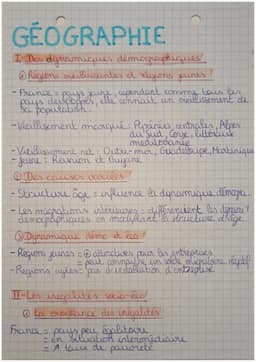 GÉOGRAPHIE
I- Des dynamiques démographiques
① Régions vieillissantes et régions jeunes
- France = pays jeune, cependant comme tous les
pays développés, elle connaît un vieillissement de
sa population.
- Vieillissement marqué : Pyrénées centrales, Alpes
du sud, Corse, littoraux
méditerranée
- Vieillissement net : Outre-mer, Guadeloupe, Martinique
- jeune : Réunion et Guyane
② Des causes
- Structure âge = influence la dynamique démogra.
- Les migrations intérieures : différencient les dynam
démographiques en modifiant la structure d'âge
③ Dynamique démo et éco
- Régions jeunes = ⊕ attractives pour les entreprises
= peut connaître un solde migratoire négatif
- Régions agées = pas d'installation d'entreprise
II- Les inégalités socio-éco
① La persistance des inégalités
France = pays peu égalitaire
= en situation intermédiaire
= taux de pauvreté